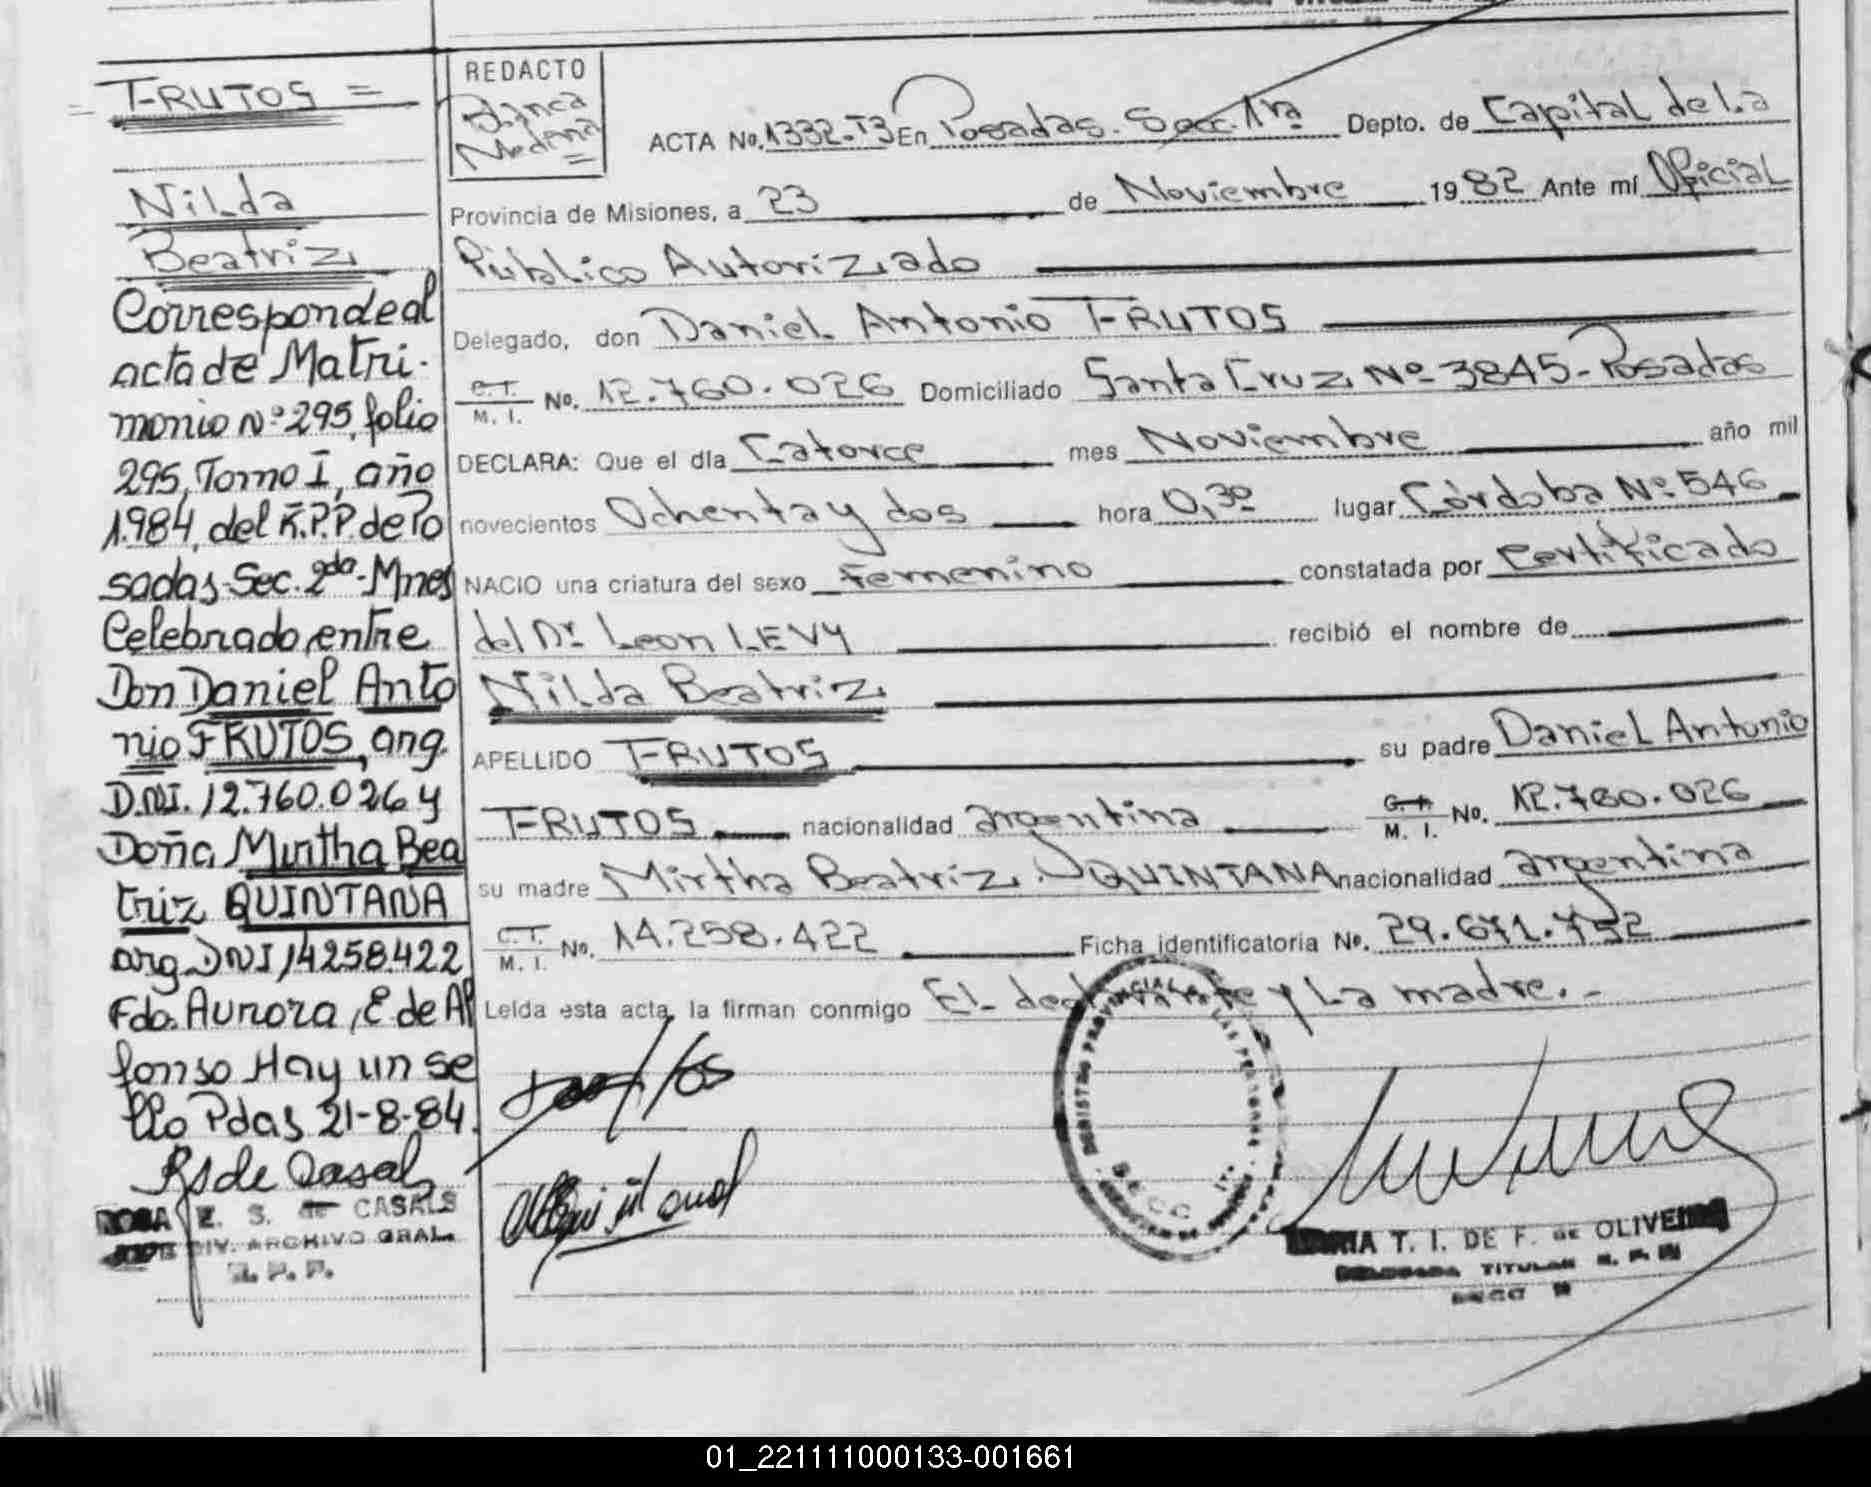 = FRUTOS =
Nilda
Beatriz
Corresponde al
acta de Matri-
monio Nº 295, folio
295, Tomo I, año
1.984, del R.P.P. de Po
sadas-Sec. 2da-Mnes
Celebrado, entre
Don Daniel Anto
nio FRUTOS, arg.
D.N.I. 12.760.026 y
Doña Mirtha Bea
triz QUINTANA
arg. DNI 14258.422
Fdo. Aurora, E. de Al
fonso Hay un se
llo Pdas 21-8-84.
RS de Casals
ROSA E. S. de CASALS
JEFE DIV. ARCHIVO GRAL.
R. P. P.
REDACTO
Blanca
Medina
=
ACTA No. 1332-T3 En Posadas. Secc. 1ra Depto. de Capital de La
Provincia de Misiones, a 23 de Noviembre 1982 Ante mí Oficial
Público Autorizado
Delegado, don Daniel Antonio FRUTOS
C.I. M. I. No. 12.760.026 Domiciliado Santa Cruz Nº 3845-Posadas
DECLARA: Que el día Catorce mes Noviembre año mil
novecientos Ochenta y dos hora 0,30 lugar Córdoba Nº 546
NACIO una criatura del sexo femenino constatada por Certificado
del Dr. Leon LEVY recibió el nombre de
Nilda Beatriz
APELLIDO FRUTOS su padre Daniel Antonio
FRUTOS nacionalidad argentina C.I. M. I. No. 12.760.026
su madre Mirtha Beatriz QUINTANA nacionalidad argentina
C.I. M. I. No. 14.258.422 Ficha identificatoria No. 29.671.752
Leída esta acta, la firman conmigo El declarante y La madre.-
REGISTRO PROVINCIAL DE LAS PERSONAS
SECC.
T. I. DE F. de OLIVEIRA
DELEGADA TITULAR R. P. P.
SECC
01_221111000133-001661